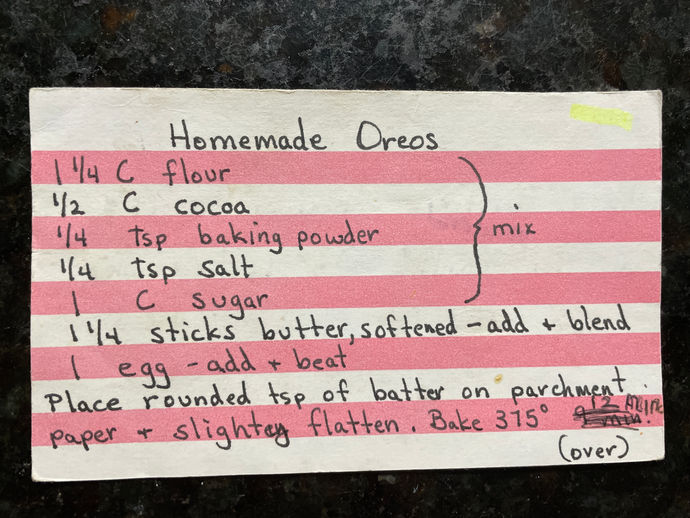 Homemade Oreos
1 1/4 C flour
1/2 C cocoa
1/4 tsp baking powder
1/4 tsp salt
1 C sugar
mix
1 1/4 sticks butter, softened - add + blend
1 egg - add + beat
Place rounded tsp of batter on parchment
paper + slightly flatten. Bake 375° 12 min.
(over)